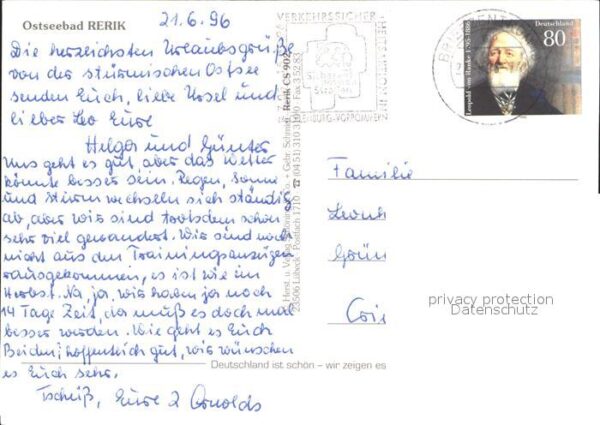 Ostseebad RERIK
21.6.96
Die herzlichsten Urlaubsgrüße
von der stürmischen Ostsee
senden Euch, liebe Ursel und
lieber Leo Eure
Helga und Günter
Uns geht es gut, aber das Wetter
könnte besser sein. Regen, Sonne
und Sturm wechseln sich ständig
ab, aber wir sind trotzdem schon
sehr viel gewandert. Wir sind noch
nicht aus den Trainingsanzügen
rausgekommen, es ist wie im
Herbst. Na ja, wir haben ja noch
14 Tage Zeit, da muß es doch mal
besser werden. Wie geht es Euch
Beiden, hoffentlich gut, wir wünschen
es Euch sehr.
Tschüß, Eure 2 Arnolds
VERKEHRSSICHER
Rerik CS 902
23506 Lübeck · Postfach 1710 ☎ (04 51)
Deutschland ist schön – wir zeigen es
Deutschland
80
Leopold von Ranke 1795-1886
Familie
privacy protection
Datenschutz